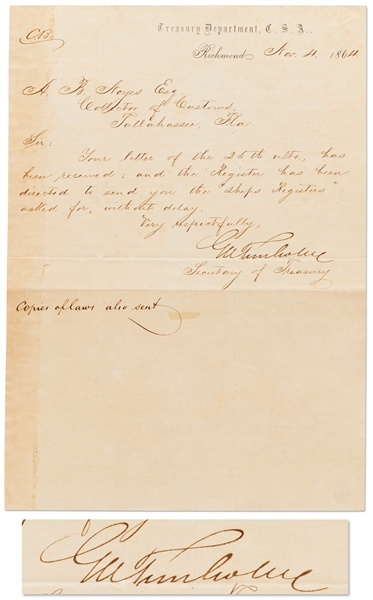 C.B.
Treasury Department, C. S. A.,
Richmond Nov. 4, 1864.
A. B. Noyes Esq
Collector of Customs,
Tallahassee, Fla.
Sir:
Your letter of the 25th ulto, has
been received; and the Register has been
directed to send you the "Ships Registers"
asked for, without delay.
Very respectfully,
G A Trenholm
Secretary of Treasury
Copies of laws also sent
G A Trenholm